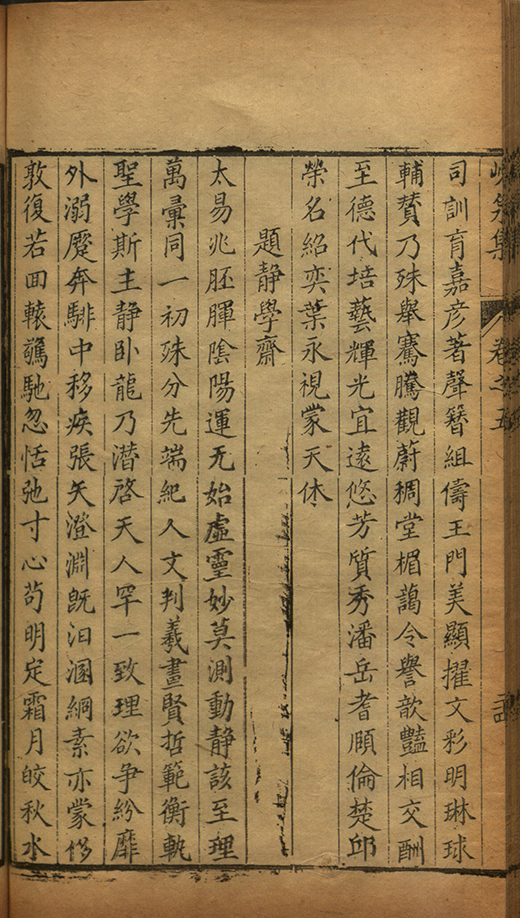 峴泉集 卷之五
司訓育嘉彦著聲簪組儔王門美顯擢文彩明琳球
輔賛乃殊舉騫騰觀蔚稠堂楣藹令譽歆豔相交酬
至德代培藝輝光宜遠悠芳質秀潘岳耆頤倫楚邱
榮名紹奕葉永視蒙天休
題静學齋
太易兆胚腪陰陽運无始虛靈妙莫測動静該至理
萬彚同一初殊分先端紀人文判羲畫賢哲範衡軌
聖學斯主静卧龍乃潜啓天人罕一致理欲争紛靡
外溺蹙奔騑中移疾張矢澄淵既汩溷綱素亦蒙侈
敦復若回轅驕馳忽恬弛寸心苟明定霜月皎秋水